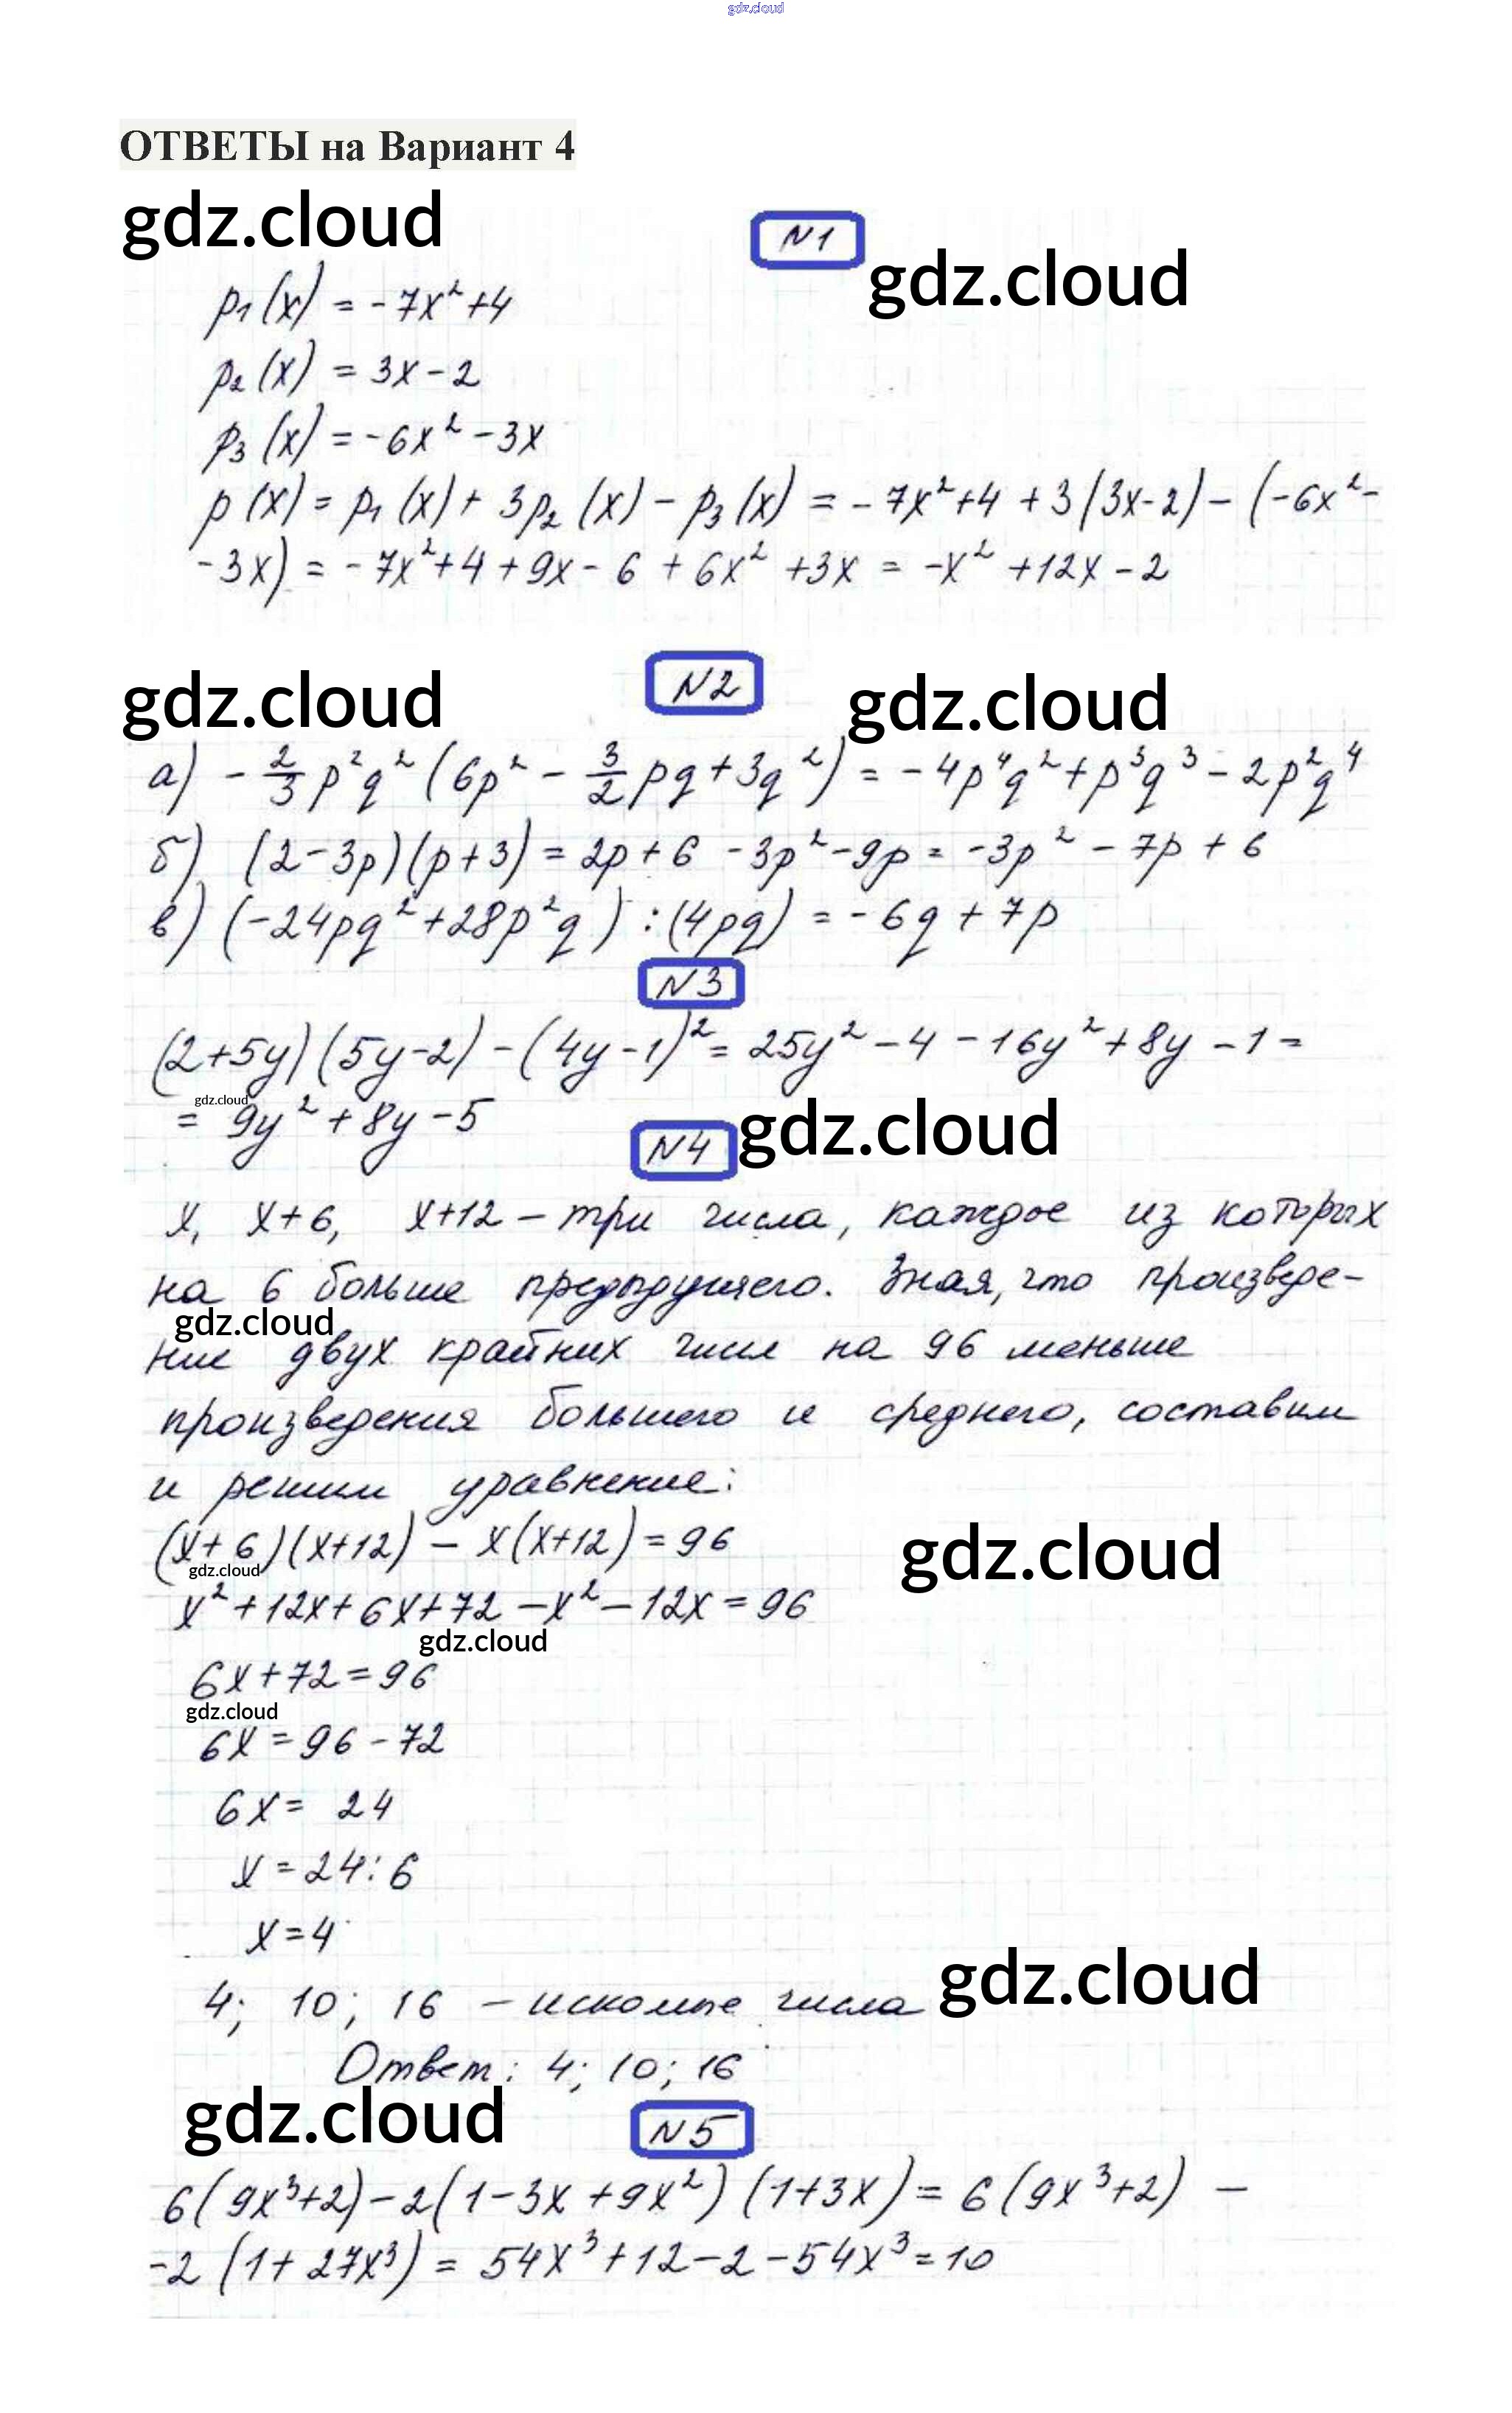 gdz.cloud
ОТВЕТЫ на Вариант 4
gdz.cloud
N1
gdz.cloud
p₁(x) = -7x²+4
p₂(x) = 3x-2
p₃(x) = -6x²-3x
p(x) = p₁(x) + 3p₂(x) - p₃(x) = -7x²+4 + 3(3x-2) - (-6x²-
-3x) = -7x²+4+9x-6+6x²+3x = -x²+12x-2
gdz.cloud
N2
gdz.cloud
а) -2/3 p²q²(6p² - 3/2 pq + 3q²) = -4p⁴q²+p³q³-2p²q⁴
б) (2-3p)(p+3) = 2p+6-3p²-9p = -3p²-7p+6
в) (-24pq²+28p²q) : (4pq) = -6q+7p
N3
(2+5y)(5y-2)-(4y-1)² = 25y²-4-16y²+8y-1=
gdz.cloud
= 9y²+8y-5
N4
gdz.cloud
x, x+6, x+12 – три числа, каждое из которых
на 6 больше предыдущего. Зная, что произведе-
gdz.cloud
ние двух крайних чисел на 96 меньше
произведения большего и среднего, составим
и решим уравнение:
(x+6)(x+12) - x(x+12) = 96
gdz.cloud
gdz.cloud
x²+12x+6x+72-x²-12x = 96
gdz.cloud
6x+72=96
gdz.cloud
6x=96-72
6x= 24
x=24:6
x=4
4; 10; 16 – искомые числа
gdz.cloud
Ответ: 4; 10; 16
gdz.cloud
N5
6(9x³+2)-2(1-3x+9x²)(1+3x) = 6(9x³+2) -
-2(1+27x³) = 54x³+12-2-54x³=10